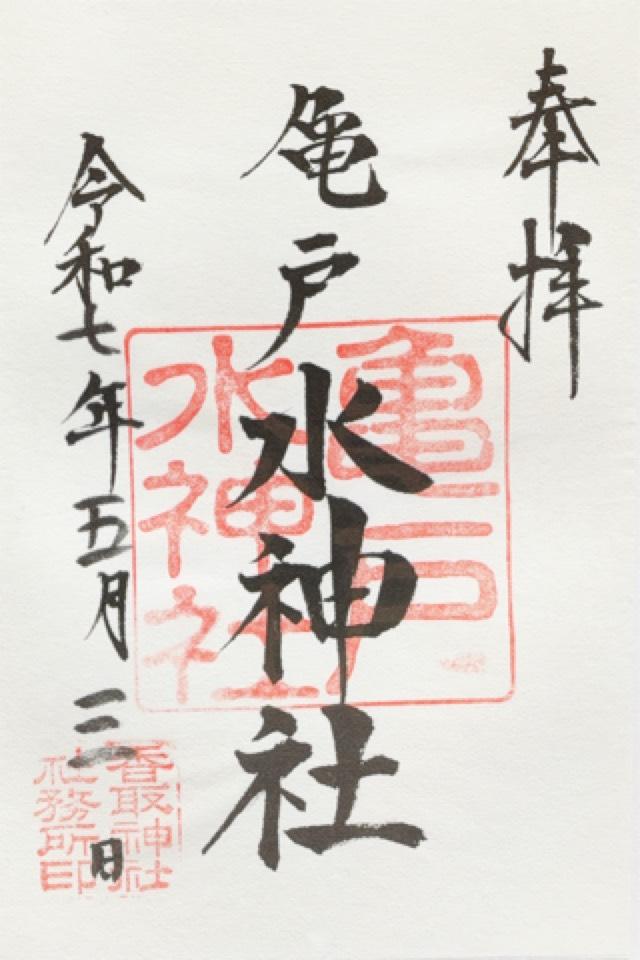 奉拝
亀戸水神社
令和七年五月三日
亀戸
水神社
香取神社
社務所印